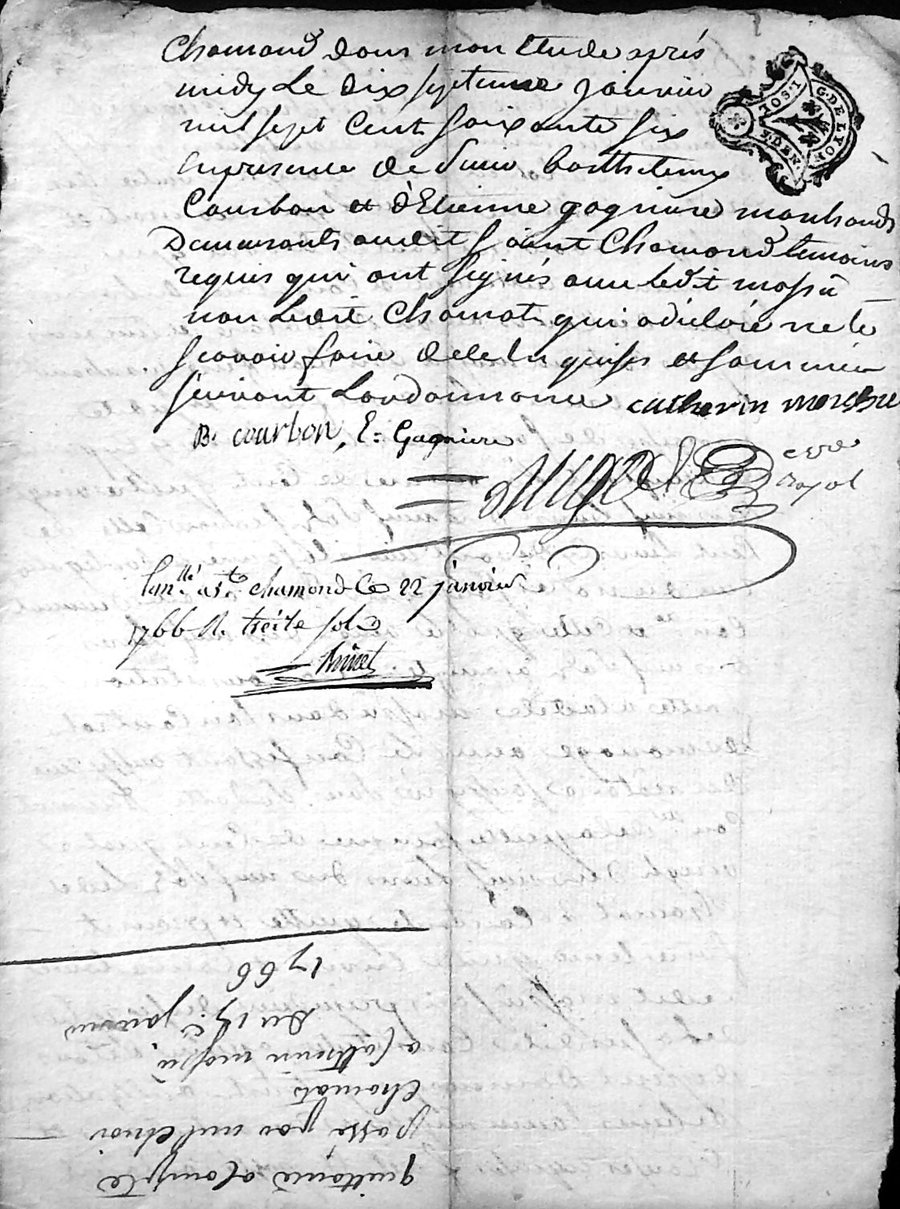 Chamond dans mon Etude aprés
midy Le dix septieme janvier
mil sept Cent soixante six
En presence de sieur Barthelemy
Courbon et d'Etienne gagniere marchands
Demeurants audit Saint Chamond temoins
requis qui ont signés avec ledit
non Ledit Chomat qui a déclaré ne le
scavoir faire de ce Enquis et sommé
suivant Lordonnance catherin
B. courbon, E: Gagniere
st. chamond Ce 22 janvier
1766 R. treize sols
I. SOL
G. DE LYON
DEN.
quittance a Compte
passé par
Chomat
a Catherin
Du 17e janvier
1766